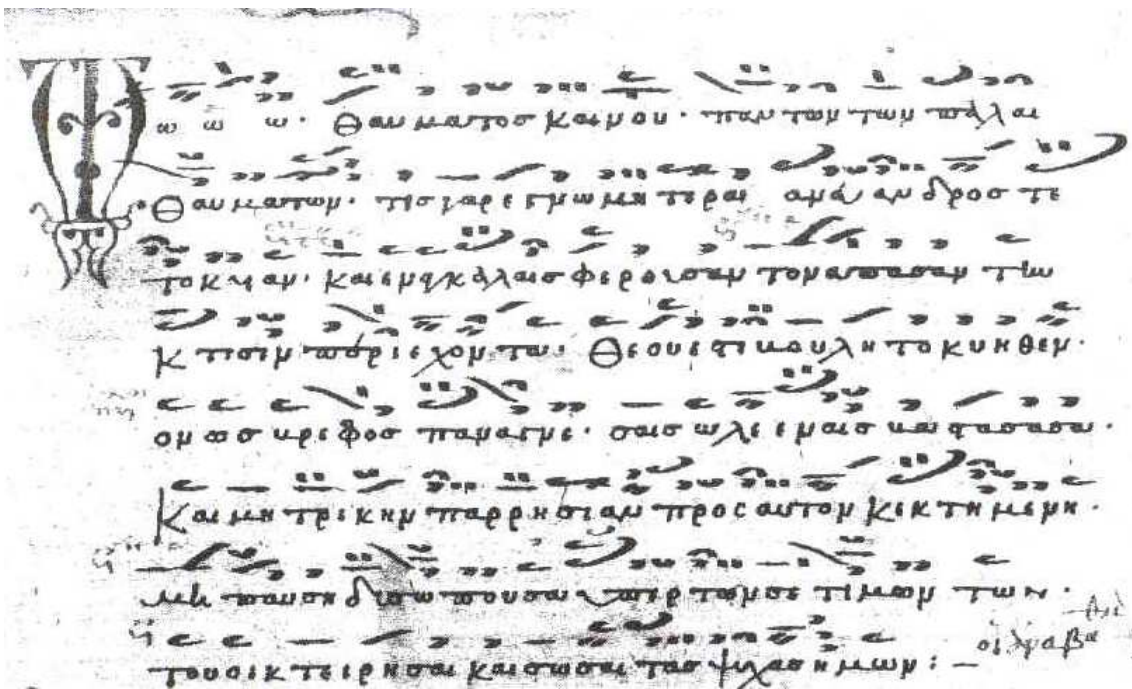 ω ω ω. Θαυματος καινου. παντων των παλαι
Θαυματων. τις γαρ εγνω μητερα ανδρος τε
τοκυιαν. και εν αγκαλαις φερουσαν τον απασαν την
κτισιν περιεχοντα. Θεου εστι βουλη το κυηθεν.
ον ως βρεφος παναγνε. σαις ωλεναις βαστασασα.
Και μητρικην παρρησιαν προς αυτον κεκτημενη.
μη παυση δυσωπουσα υπερ των σε τιμωντων.
του οικτειρησαι και σωσαι τας ψυχας ημων:—